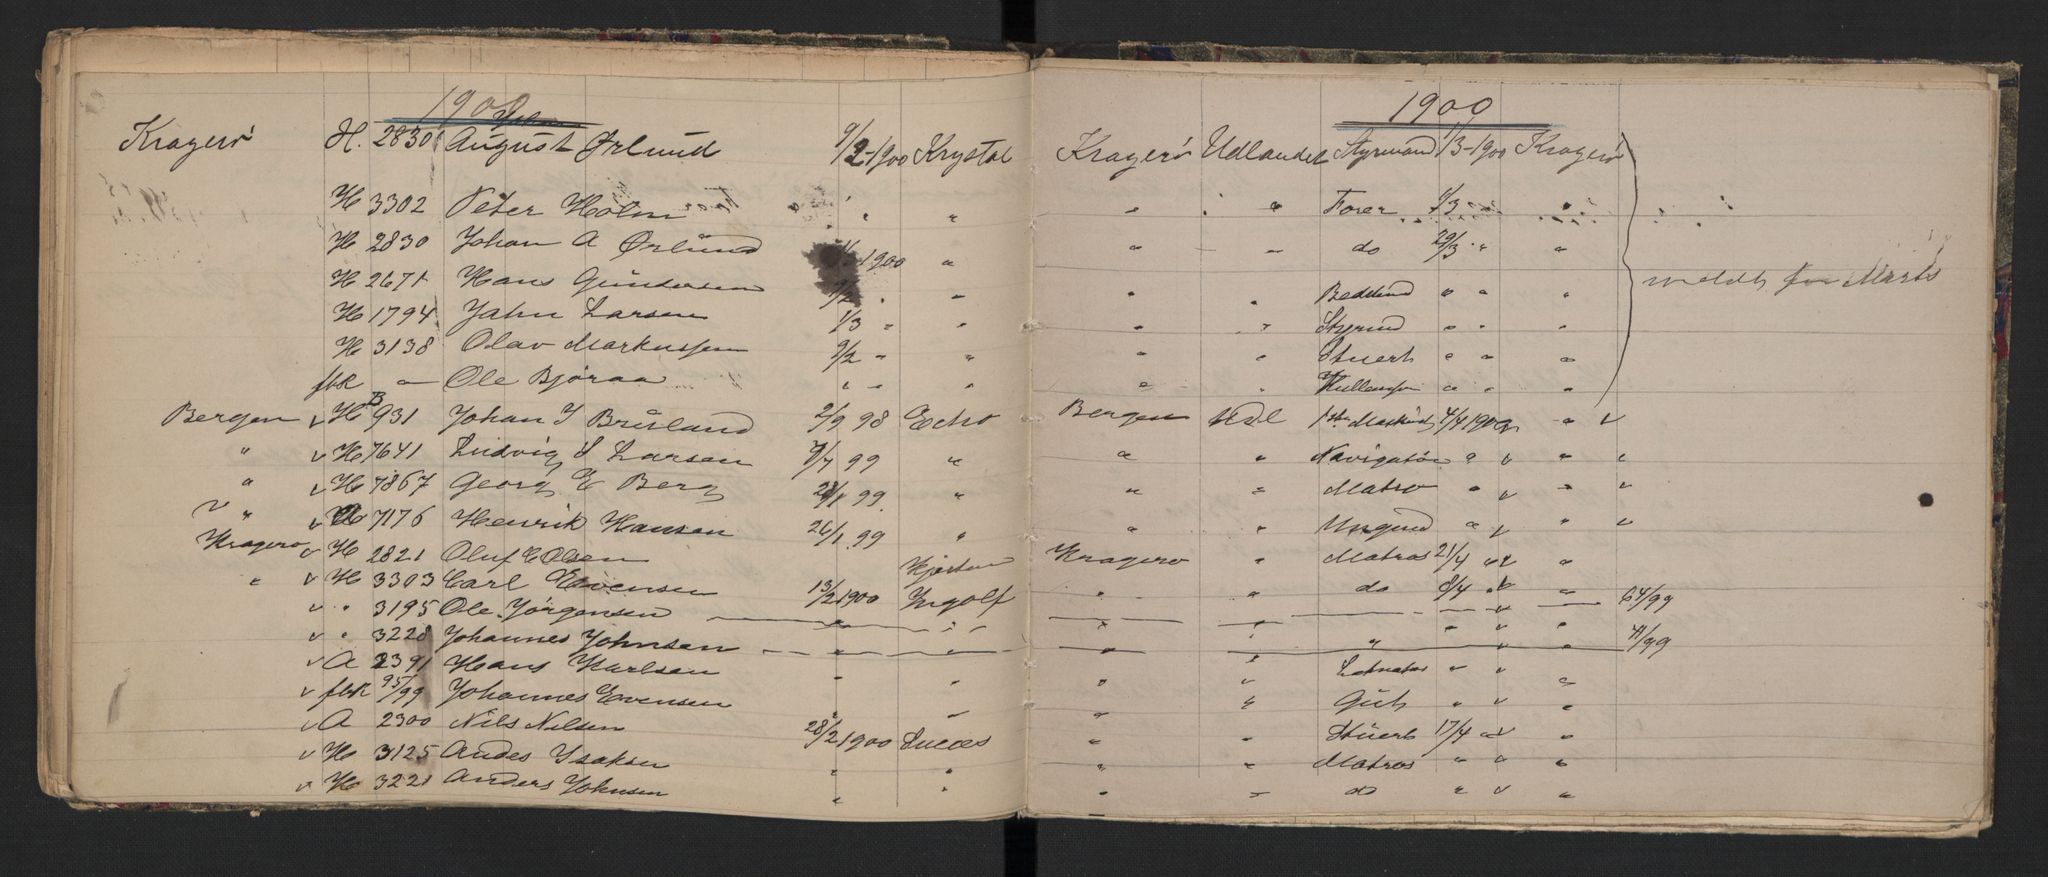 1900 1900
Kragerø H. 2830 August Ørlund 9/2-1900 Krystal Kragerø Udlandet Styrmand 1/3-1900 Kragerø
H 3302 Peter Holm " " " " " Forer 1/3 " "
H 2830 Johan A Ørlund 1900 " " - - do 29/3 " "
H 2671 Hans Gundersen 9/2 " " " " " " " meldt for Marts
H 1794 Jahn Larsen 1/3 " " " " Styrmd " " "
H 3138 Olav Markussen 9/2 " " " " Stuert " " "
fbk - Ole Bjøraa " " " " " " " "
Bergen v H B 931 Johan J Brisland 2/9 98 Echo Bergen Udl 1ste Maskinst 4/4 1900 " v
" v H 7641 Ludvig S Larsen 99 " " " Navigatør " v " v
" v H 7867 Georg E Berg 28/1 99 " " " Matro " v " v
" v 7176 Henrik Hansen 26/1 99 " " " Ungmd " v " v
Kragerø v H 2821 Oluf E Olsen Kragerø " Matros 21/4 " v "
" v H 3303 Carl Evensen 13/2 1900 Ingolf " " do 8/4 " v "
v " 3195 Ole Jörgensen " " " " " " v " 64/99
v " 3228 Johannes Johnsen " " " " " " v " 41/99
v A 2391 Hans Karlsen " " " " " v "
v fbk 95/99 Johannes Evensen " " " " Gut " v "
v A 2300 Nils Nilsen 28/2 1900 Succes " " Stuert 17/4 " v "
v H 3125 Andes Isaksen " " " " Matros " v "
v H 3221 Anders Johnsen " " " " do " v "